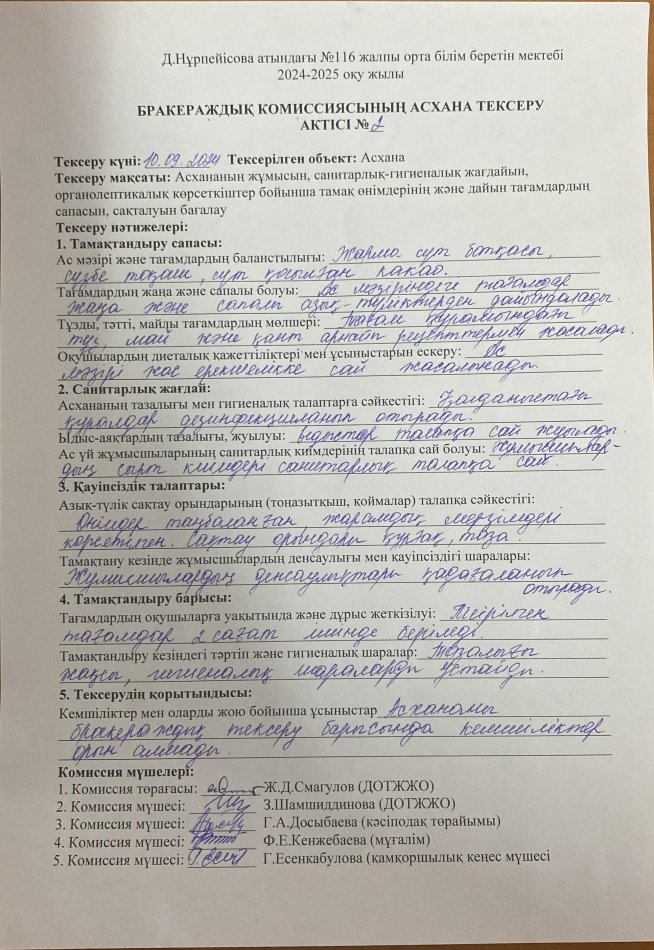 Д.Нұрпейісова атындағы №116 жалпы орта білім беретін мектебі
2024-2025 оқу жылы
БРАКЕРАЖДЫҚ КОМИССИЯСЫНЫҢ АСХАНА ТЕКСЕРУ
АКТІСІ № 2
Тексеру күні: 10.09.2024 Тексерілген объект: Асхана
Тексеру мақсаты: Асхананың жұмысын, санитарлық-гигиеналық жағдайын,
органолептикалық көрсеткіштер бойынша тамақ өнімдерінің және дайын тағамдардың
сапасын, сақталуын бағалау
Тексеру нәтижелері:
1. Тамақтандыру сапасы:
Ас мәзірі және тағамдардың баланстылығы: Жарма сүт ботқасы,
сүзбе тоқаш, сүт қосылған какао.
Тағамдардың жаңа және сапалы болуы: Ас мәзіріндегі тағамдар
жаңа және сапалы азық-түліктерден дайындалады.
Тұзды, тәтті, майлы тағамдардың мөлшері: Тағам құрамындағы
тұз, май және қант арнайы рецепттермен жасалады.
Оқушылардың диеталық қажеттіліктері мен ұсыныстарын ескеру: Ас
мәзірі жас ерекшелікке сай жасалынады.
2. Санитарлық жағдай:
Асхананың тазалығы мен гигиеналық талаптарға сәйкестігі: Қолданыстағы
құралдар дезинфекцияланып отырады.
Ыдыс-аяқтардың тазалығы, жуылуы: ыдыстар талапқа сай жуылады.
Ас үй жұмысшыларының санитарлық киімдерінің талапқа сай болуы: Жұмысшылар-
дың сырт киімдері санитарлық талапқа сай.
3. Қауіпсіздік талаптары:
Азық-түлік сақтау орындарының (тоңазытқыш, қоймалар) талапқа сәйкестігі:
Өнімдер таңбаланған, жарамдық мерзімдері
көрсетілген. Сақтау орындары құрғақ, таза.
Тамақтану кезінде жұмысшылардың денсаулығы мен қауіпсіздігі шаралары:
Жұмысшылардың денсаулықтары қадағаланып
отырады.
4. Тамақтандыру барысы:
Тағамдардың оқушыларға уақытында және дұрыс жеткізілуі: Пісірілген
тағамдар 2 сағат ішінде беріледі.
Тамақтандыру кезіндегі тәртіп және гигиеналық шаралар: Тазалығы
жақсы, гигиеналық шараларды ұстайды.
5. Тексерудің қорытындысы:
Кемшіліктер мен оларды жою бойынша ұсыныстар Асхананы
бракераждық тексеру барысында кемшіліктер
орын алмады.
Комиссия мүшелері:
1. Комиссия төрағасы: Ж.Д.Смагулов (ДОТЖЖО)
2. Комиссия мүшесі: З.Шамшиддинова (ДОТЖЖО)
3. Комиссия мүшесі: Г.А.Досыбаева (кәсіподақ төрайымы)
4. Комиссия мүшесі: Ф.Е.Кенжебаева (мұғалім)
5. Комиссия мүшесі: Г.Есенкабулова (қамқоршылық кеңес мүшесі